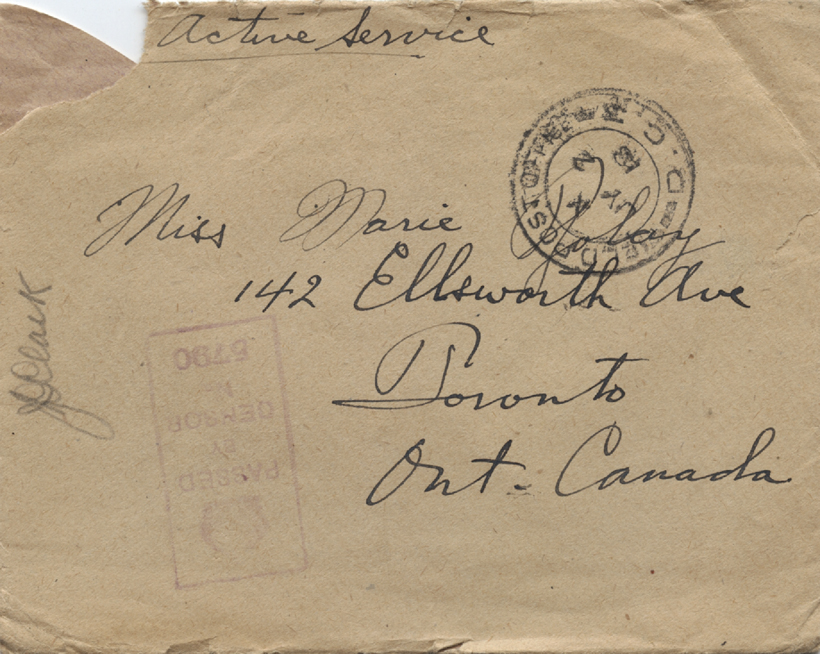 Active Service
Miss Marie
142 Ellsworth Ave
Toronto
Ont. Canada
FIELD POST OFFICE
PASSED
BY
CENSOR
No
5790